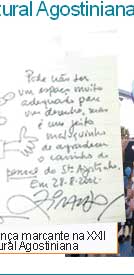 tural Agostiniana
Pode não ser
um espaço muito
adequado para
um desenho, mas
é um jeito
maluquinho
de agradecer
o carinho do
pessoal do Stº Agostinho.
Em 28.8.2012.
nça marcante na XXII
tural Agostiniana